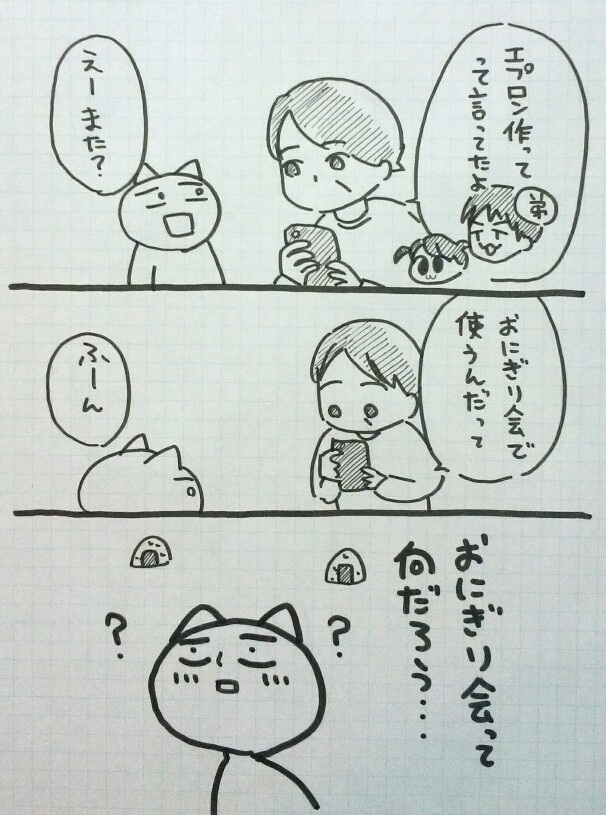 エプロン作って
って言ってたよ
弟
えーまた?
おにぎり会で
使うんだって
ふーん
おにぎり会って
何だろう…
?
?